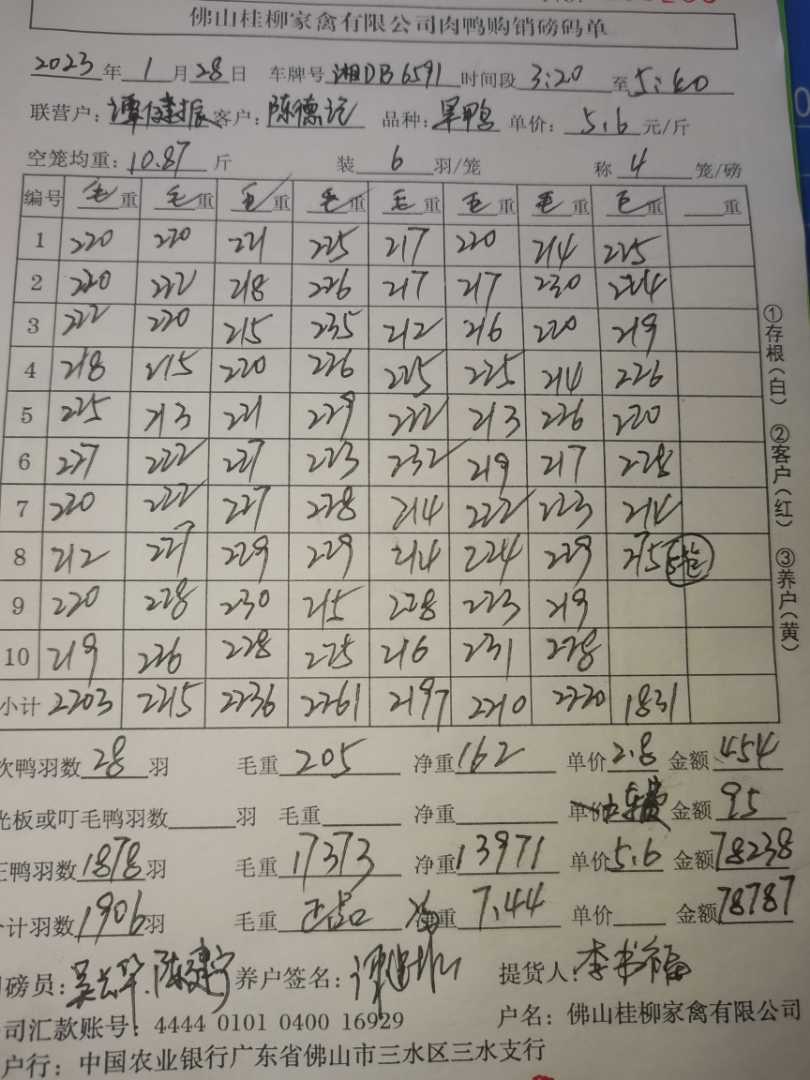 佛山桂柳家禽有限公司肉鸭购销磅码单
2023年1月28日 车牌号湘DB6591时间段3:20至5:40
联营户:谭健振客户:陈德记 品种:旱鸭 单价:5.6元/斤
空笼均重:10.87斤 装6羽/笼 称4笼/磅
编号 毛重 毛重 毛重 毛重 毛重 毛重 毛重 毛重 重
1 220 220 221 225 217 220 214 225
2 220 222 218 226 217 217 230 224
3 222 220 215 235 212 216 220 219
4 218 215 220 226 225 225 214 226
5 225 213 221 229 222 213 226 220
6 227 222 227 223 232 219 217 228
7 220 222 227 228 214 222 223 214
8 212 227 229 229 214 224 229 275
9 220 228 230 215 228 223 219
10 219 226 228 225 216 231 228
小计 2203 2215 2236 2261 2197 2210 2220 1831
次鸭羽数28羽 毛重205 净重162 单价2.8 金额454
光板或叮毛鸭羽数 羽 毛重 净重 单价 金额95
正鸭羽数1878羽 毛重17373 净重13971 单价5.6 金额78238
合计羽数1906羽 毛重 重7.44 单价 金额78787
司磅员:吴 陈建宁 养户签名:谭健振 提货人:李书福
公司汇款账号:4444 0101 0400 16929 户名:佛山桂柳家禽有限公司
户行:中国农业银行广东省佛山市三水区三水支行
①存根(白) ②客户(红) ③养户(黄)